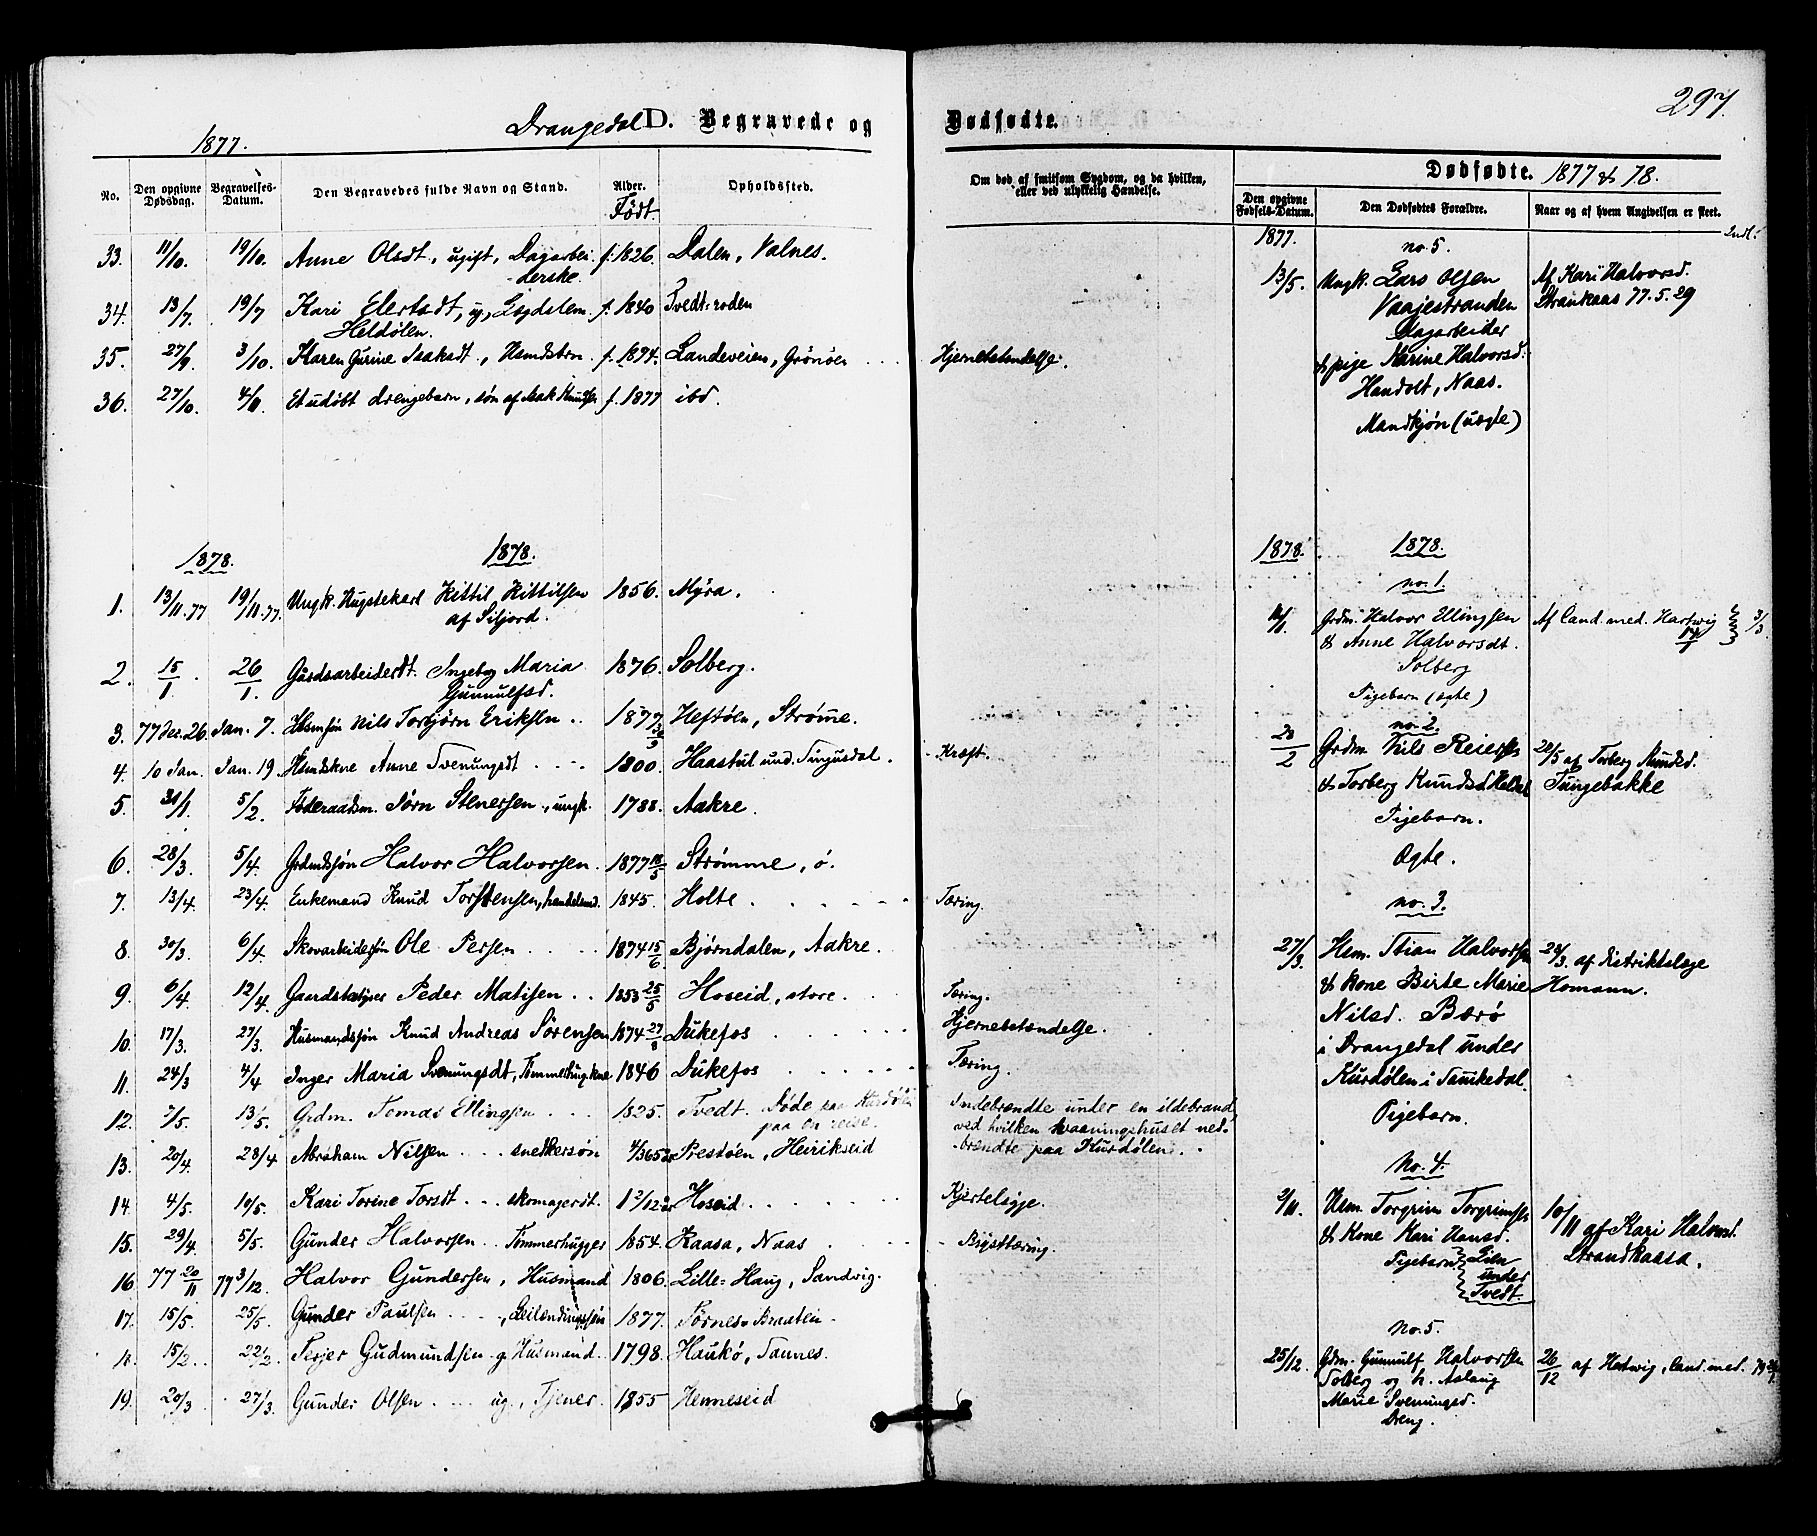 1877.
Drangedal D. Begravede og
No.
Den opgivne Dødsdag.
Begravelses-Datum.
Den Begravedes fulde Navn og Stand.
Alder. Født.
Opholdssted.
33. 11/10. 19/10. Anne Olsdt, ugift, Dagarbei- f. 1826. Dalen, Valnes.
derske.
34. 13/7. 19/7 Kari Elertsdt, ug, f. 1840 Tvedt-roden
Heldølen.
35. 27/9. 3/10. Karen Gurine Isaksdt, Hsmdsbrn. f. 1874. Landeveien, Grönöen
36. 27/10. 4/11. Et udöbt drengebarn, sön af Isak Knudsen f. 1877 ibd.
1878. 1878.
1. 13/11.77 19/11.77. Ungk. Hugstekarl Kittil Kittilsen 1856. Mÿra.
af Siljord.
2. 15/1. 26/1. Gaardsarbeiderdt. Ingebg Maria 1876. Solberg.
Gunnulfsd.
3. 77 Dec. 26. Jan. 7. Hsmsøn Nils Torbjörn Eriksen 1877 30/9 Heftöen, Strøme.
4. 10 Jan. Jan. 19 Hsmdskne Anne Svenungsdt 1800. Haastul und. Tingusdal.
5. 31/1 5/2. Föderaadsm. Jörn Stenersen, ungk. 1788. Aakre.
6. 28/3. 5/4. Grdmdssjön Halvor Halvorsen 1877 18/5 Strømme, ö.
7. 13/4. 23/4. Enkemand Knud Torstensen, handelsmd. 1845. Holte.
8. 30/3. 6/4. Skovarbeidersön Ole Persen 1874 15/6 Bjørndalen, Aakre.
9. 6/4. 12/4. Gaardsbestyrer Peder Matisen 1853 25/5 Hoseid, store.
10. 17/3. 27/3. Husmandssjön Knud Andreas Sörensen 1874 27/8 Dukefos
11. 24/3 4/4 Inger Maria Svenungsdt, Tømmerhug.kne 1846 Dukefos
12. 7/5. 13/5. Grdm. Tomas Ellingsen 1825. Tvedt. Døde paa Kurdølen
paa en reise.
13. 20/4. 28/4 Abraham Nilsen snedkersön 4/365 Prestöen, Heirikseid
14. 4/5. 10/5. Kari Torine Torsdt. skomagerdt. 1 2/12 aar Hoseid
15. 29/4. 5/5. Gunder Halvorsen Tømmerhugger 1854. Kaasa, Naas
16. 77 20/11 77 3/12. Halvor Gundersen, Husmand 1806. Lille-Haug, Sandvig.
17. 15/5. 25/5. Gunder Paulsen, Leilendingssön 1877. Törnes-Braaten
18. 15/2. 22/2. Terjer Gudmundsen g. Husmand 1798. Haukö, Tannes.
19. 20/3 27/3. Gunder Olsen ug. Tjener. 1855 Henneseid
Dødfødte.
297.
Om død af smitsom Sygdom, og da hvilken, eller ved ulykkelig Hændelse.
Hjernebetændelse.
Kræft.
Tæring.
Tæring.
Hjernebetændelse.
Tæring.
Indebrændte under en ildebrand,
ved hvilken vaaningshuset ned-
brændte paa Kurdølen.
Kjertelsyge.
Brÿsttæring.
Dødfødte. 1877 & 78.
Den opgivne Fødsels-Datum.
Den Dødfødtes Forældre.
Naar og af hvem Angivelsen er skeet.
Indl.
1877. no. 5.
13/5. Ungk. Lars Olsen Af Kari Halvorsd.
Vaajestranden Strankaas 77.5.29
Dagarbeider
& pige Karine Halvorsd.
Handolt, Naas.
Mandkjön (uægte)
1878. 1878.
no. 1.
Grdm. Halvor Ellingsen Af Cand. med. Hartwig 3/3
& Anne Halvorsdt.
Solberg
Pigebarn (ægte)
no. 2.
20/2 Grdm. Nils Reiersen 20/5 af Torberg Knudsd.
& Torberg Knudsd. Tüngebakke
Pigebarn.
Ægte.
no. 3.
27/3. Hsm. Stian Halvorsen 28/3. af Distriktslæge
& kone Birte Marie Homann.
Nilsd. Bærö
i Drangedal under
Kurdölen i Sannikedal.
Pigebarn.
No. 4.
2/11. Hsm. Torgrim Torgrimsen 10/11 af Kari Halvorsd.
& Kone Kari Hansd. Strandkaasa.
Pigebarn Lien
under
Tvedt.
No. 5.
25/12. Grdm. Gunnulf Halvorsen 26/12 af Hartwig, Cand. med.
Solberg og h. Aslaug
Marie Svenungsd.
Dreng.